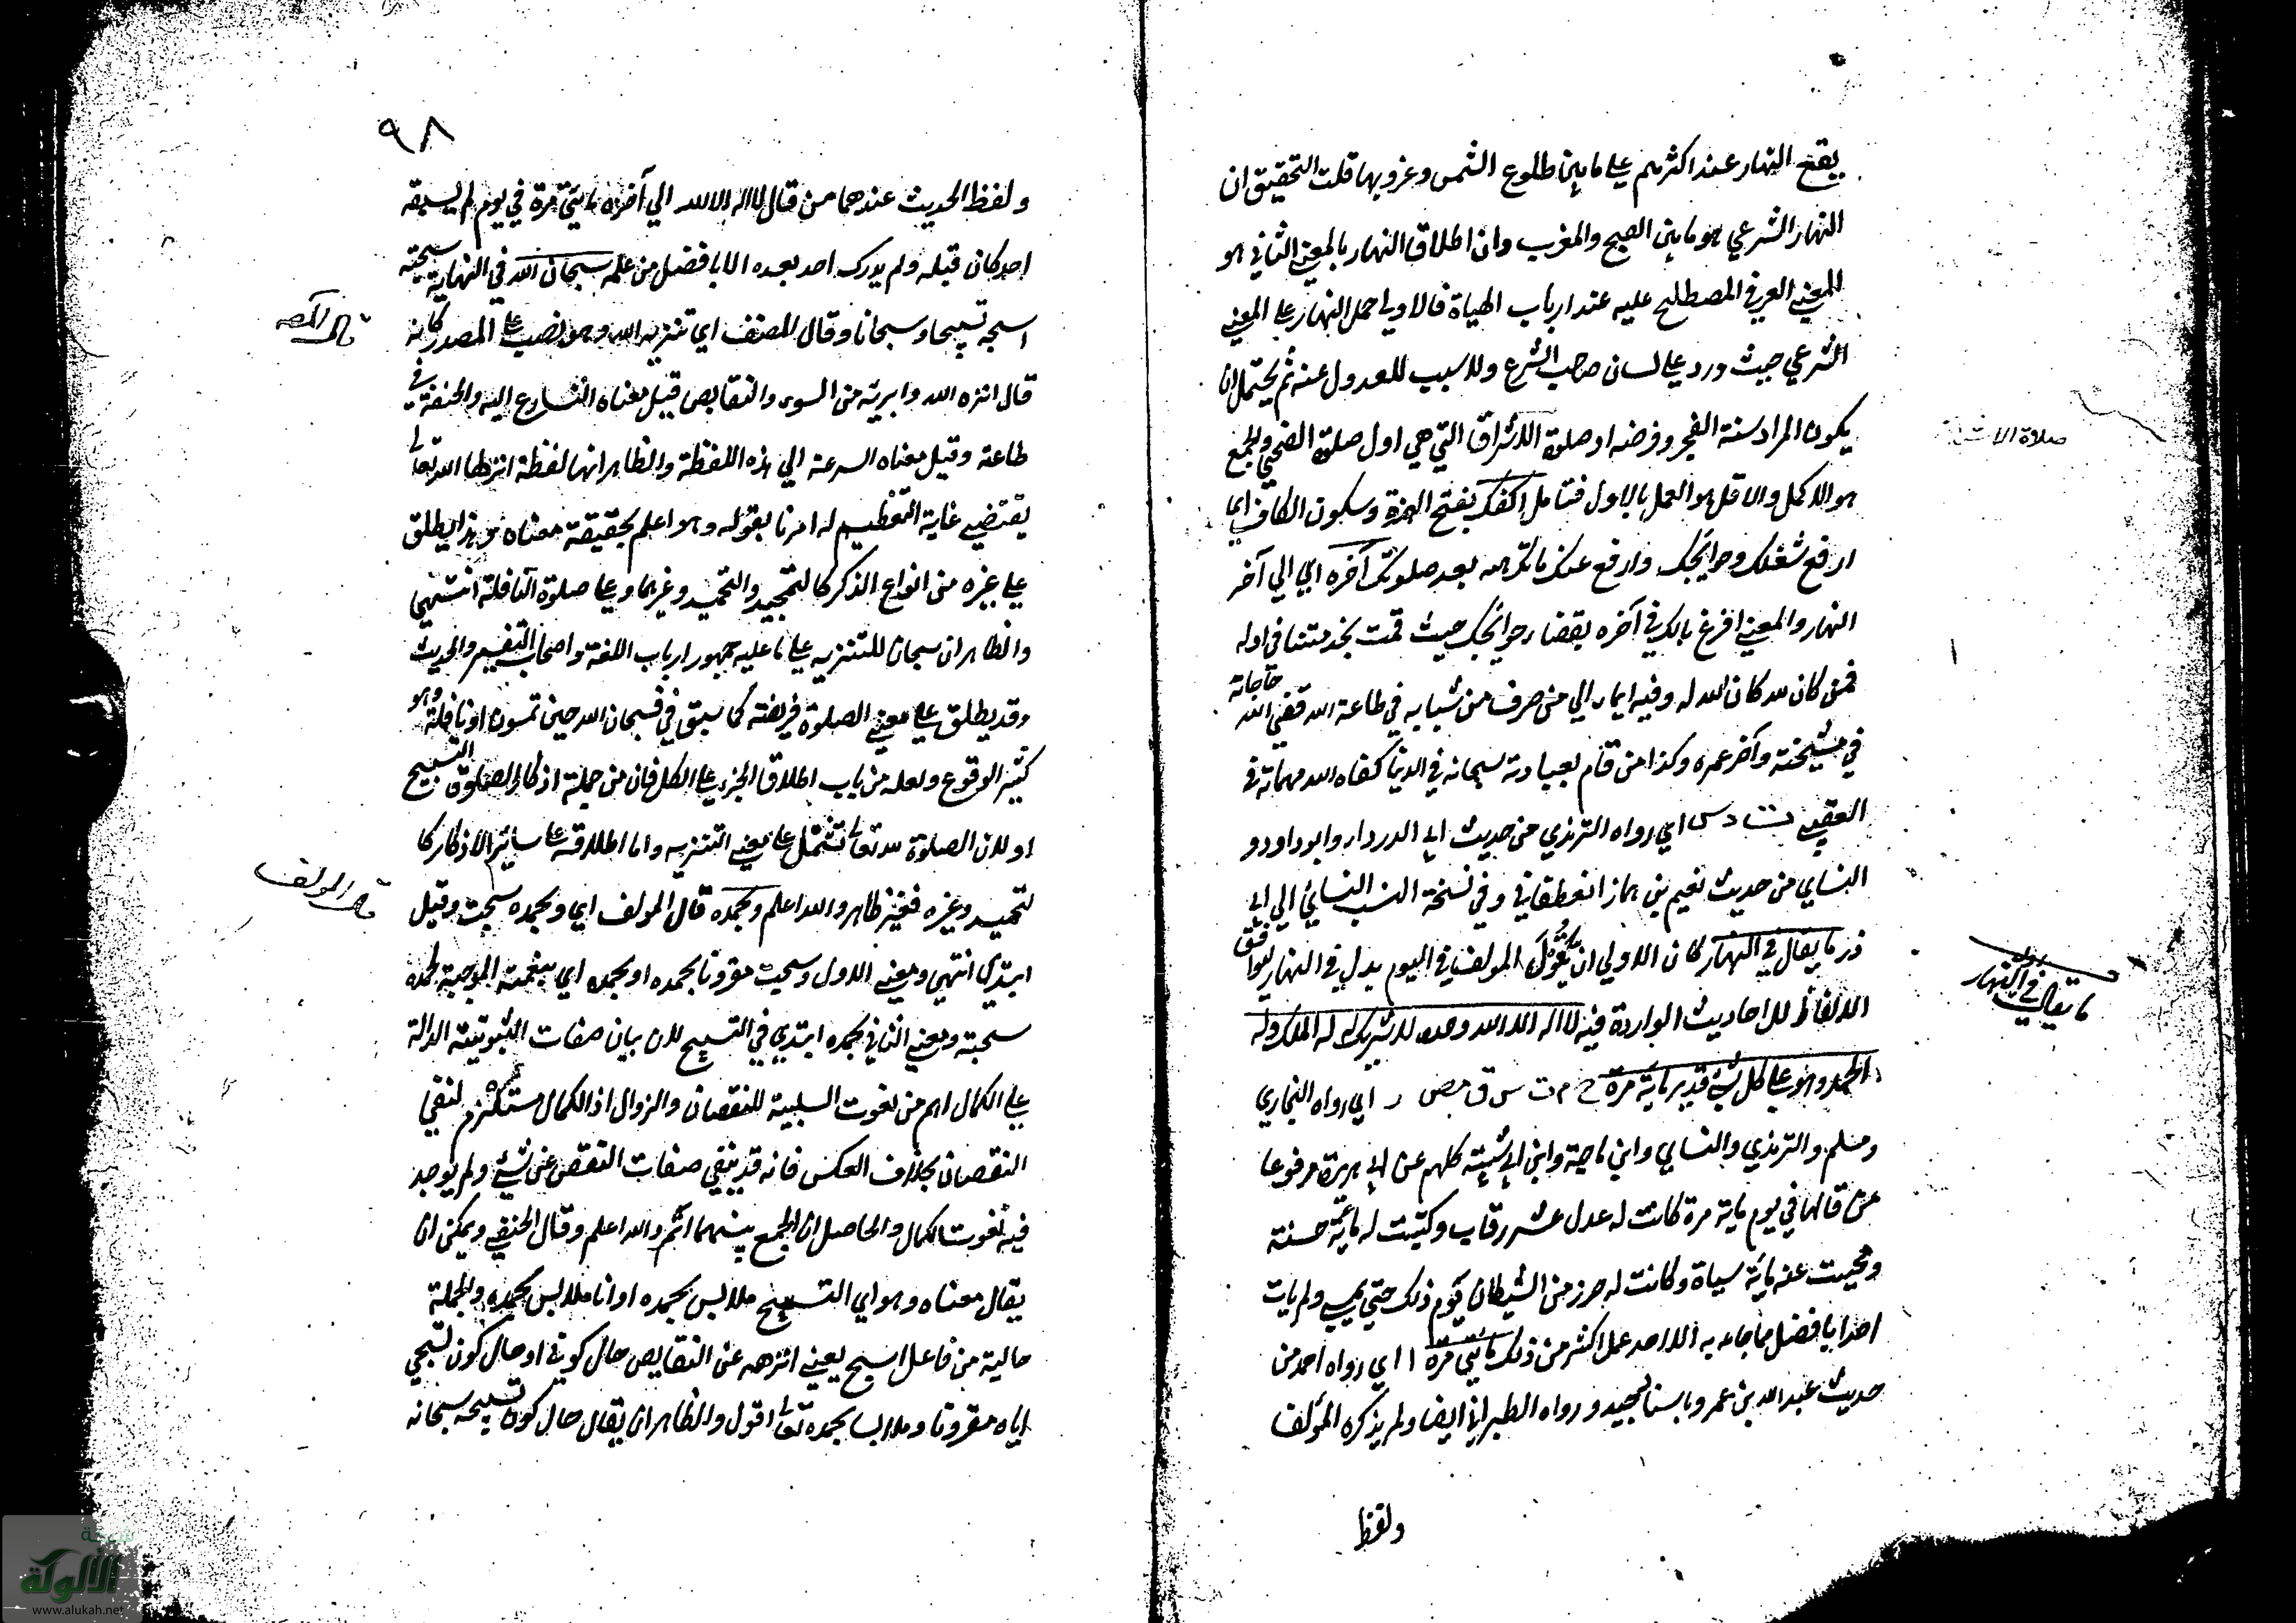 يقع النهار عند اكثرهم علي ما بين طلوع الشمس وغروبها قلت التحقيق ان
النهار الشرعي هو ما بين الصبح والمغرب وان اطلاق النهار بالمعني الثاني هو
المعني العرفي المصطلح عليه عند ارباب الهياة فالاولي حمل النهار علي المعني
الشرعي حيث ورد علي لسان صاحب الشرع ولا سبب للعدول عنه ثم يحتمل ان
يكون المراد سنة الفجر وفرضه او صلوة الاشراق التي هي اول صلوة الضحي والجمع
صلاة الاشراق
هو الاكمل والاقل هو العمل بالاول فتامل اكفك بفتح الهمزة وسكون الكاف اي
ارفع شغلك وحوائجك وارفع عنك ما تكرهه بعد صلوتك آخره اي الي آخر
النهار والمعني افرغ بالك في آخره بقضاء حوائجك حيث قمت بخدمتنا في اوله
فمن كان لله كان الله له وفيه ايماء الي من صرف من شبابه في طاعة الله قضي الله حاجاته
في مشيخته وآخر عمره وكذا من قام بعبادته سبحانه في الدنيا كفاه الله مهماته في
العقبي ت د س اي رواه الترمذي من حديث ابي الدرداء وابو داود و
النسايي من حديث نعيم بن هماز الغطفاني وفي نسخة النسب النسائي الي ابي
ذر ما يقال في النهار كان الاولي ان يقول المولف في اليوم بدل في النهار ليوافق
ما يقال في النهار
الالفاظ للاحاديث الواردة فيه لا اله الا الله وحده لا شريك له له الملك وله
الحمد وهو علي كل شئ قدير ماية مرة خ م ت س ق مص اي رواه البخاري
ومسلم والترمذي والنسايي وابن ماجة وابن ابي شيبة كلهم عن ابي هريرة مرفوعا
من قالها في يوم ماية مرة كانت له عدل عشر رقاب وكتبت له مائة حسنة
ومحيت عنه مائة سياة وكانت له حرز من الشيطان يوم ذلك حتي يمسي ولم يات
احد بافضل مما جاء به الا احد عمل اكثر من ذلك مائتي مرة ا اي رواه احمد من
حديث عبد الله بن عمرو باسناد جيد ورواه الطبراني ايضا ولم يذكره المؤلف
ولفظ
٩٨
ولفظ الحديث عندهما من قال لا اله الا الله الي آخره مائتي مرة في يوم لم يسبقه
احد كان قبله ولم يدرك احد بعده الا بافضل من عمله سبحان الله في النهاية سبحته
اسبحه تسبيحا وسبحانا وقال المصنف اي تنزيه الله وهو نصب علي المصدر كانه
قال المصـ
قال انزه الله وابريه من السوء والنقايص قيل معناه التسارع اليه والخفة في
طاعته وقيل معناه السرعة الي هذه اللفظة والظاهر انها لفظة انزلها الله تعالي
يقتضي غاية التعظيم له امرنا بقوله وهو اعلم بحقيقة معناه وهذا يطلق
علي غيره من انواع الذكر كالتمجيد والتحميد وغيرهما وعلي صلوة النافلة انتهي
والظاهر ان سبحان للتنزيه علي ما عليه جمهور ارباب اللغة واصحاب التفسير والحديث
وقد يطلق علي معني الصلوة فريضة كما سبق في فسبحان الله حين تمسون او نافلة وهو
كثير الوقوع ولعله من باب اطلاق الجزء علي الكل فان من جملة اذكار الصلوة التسبيح
او لان الصلوة لله تعالي تشتمل علي معني التنزيه واما اطلاقه علي سائر الاذكار كا
لتحميد وغيره فغير ظاهر والله اعلم وبحمده قال المولف اي وبحمده سبحت وقيل
قال المولف
ابتدئ انتهي ومعني الاول وسبحت مقرونا بحمده او بحمده اي بنعمته الموجبة لحمده
سبحته ومعني الثاني بحمده ابتدي في التسبيح لان بيان صفات الثبوتية الدالة
علي الكمال اهم من نعوت السلبية للنقصان والزوال اذ الكمال مستلزم لنفي
النقصان بخلاف العكس فانه قد ينفي صفات النقص عن شئ ولم يوجد
فيه نعوت الكمال والحاصل ان الجمع بينهما اتم والله اعلم وقال الحنفي ويمكن ان
يقال معناه وهو اي التسبيح ملابس بحمده او انا ملابس بحمده والجملة
حالية من فاعل اسبح يعني انزهه عن النقايص حال كوني او حال كون تسبيحي
اياه مقرونا وملابسا بحمده تعالي اقول والظاهر ان يقال حال كون تسبيحه سبحانه
شبكة
الألوكة
www.alukah.net